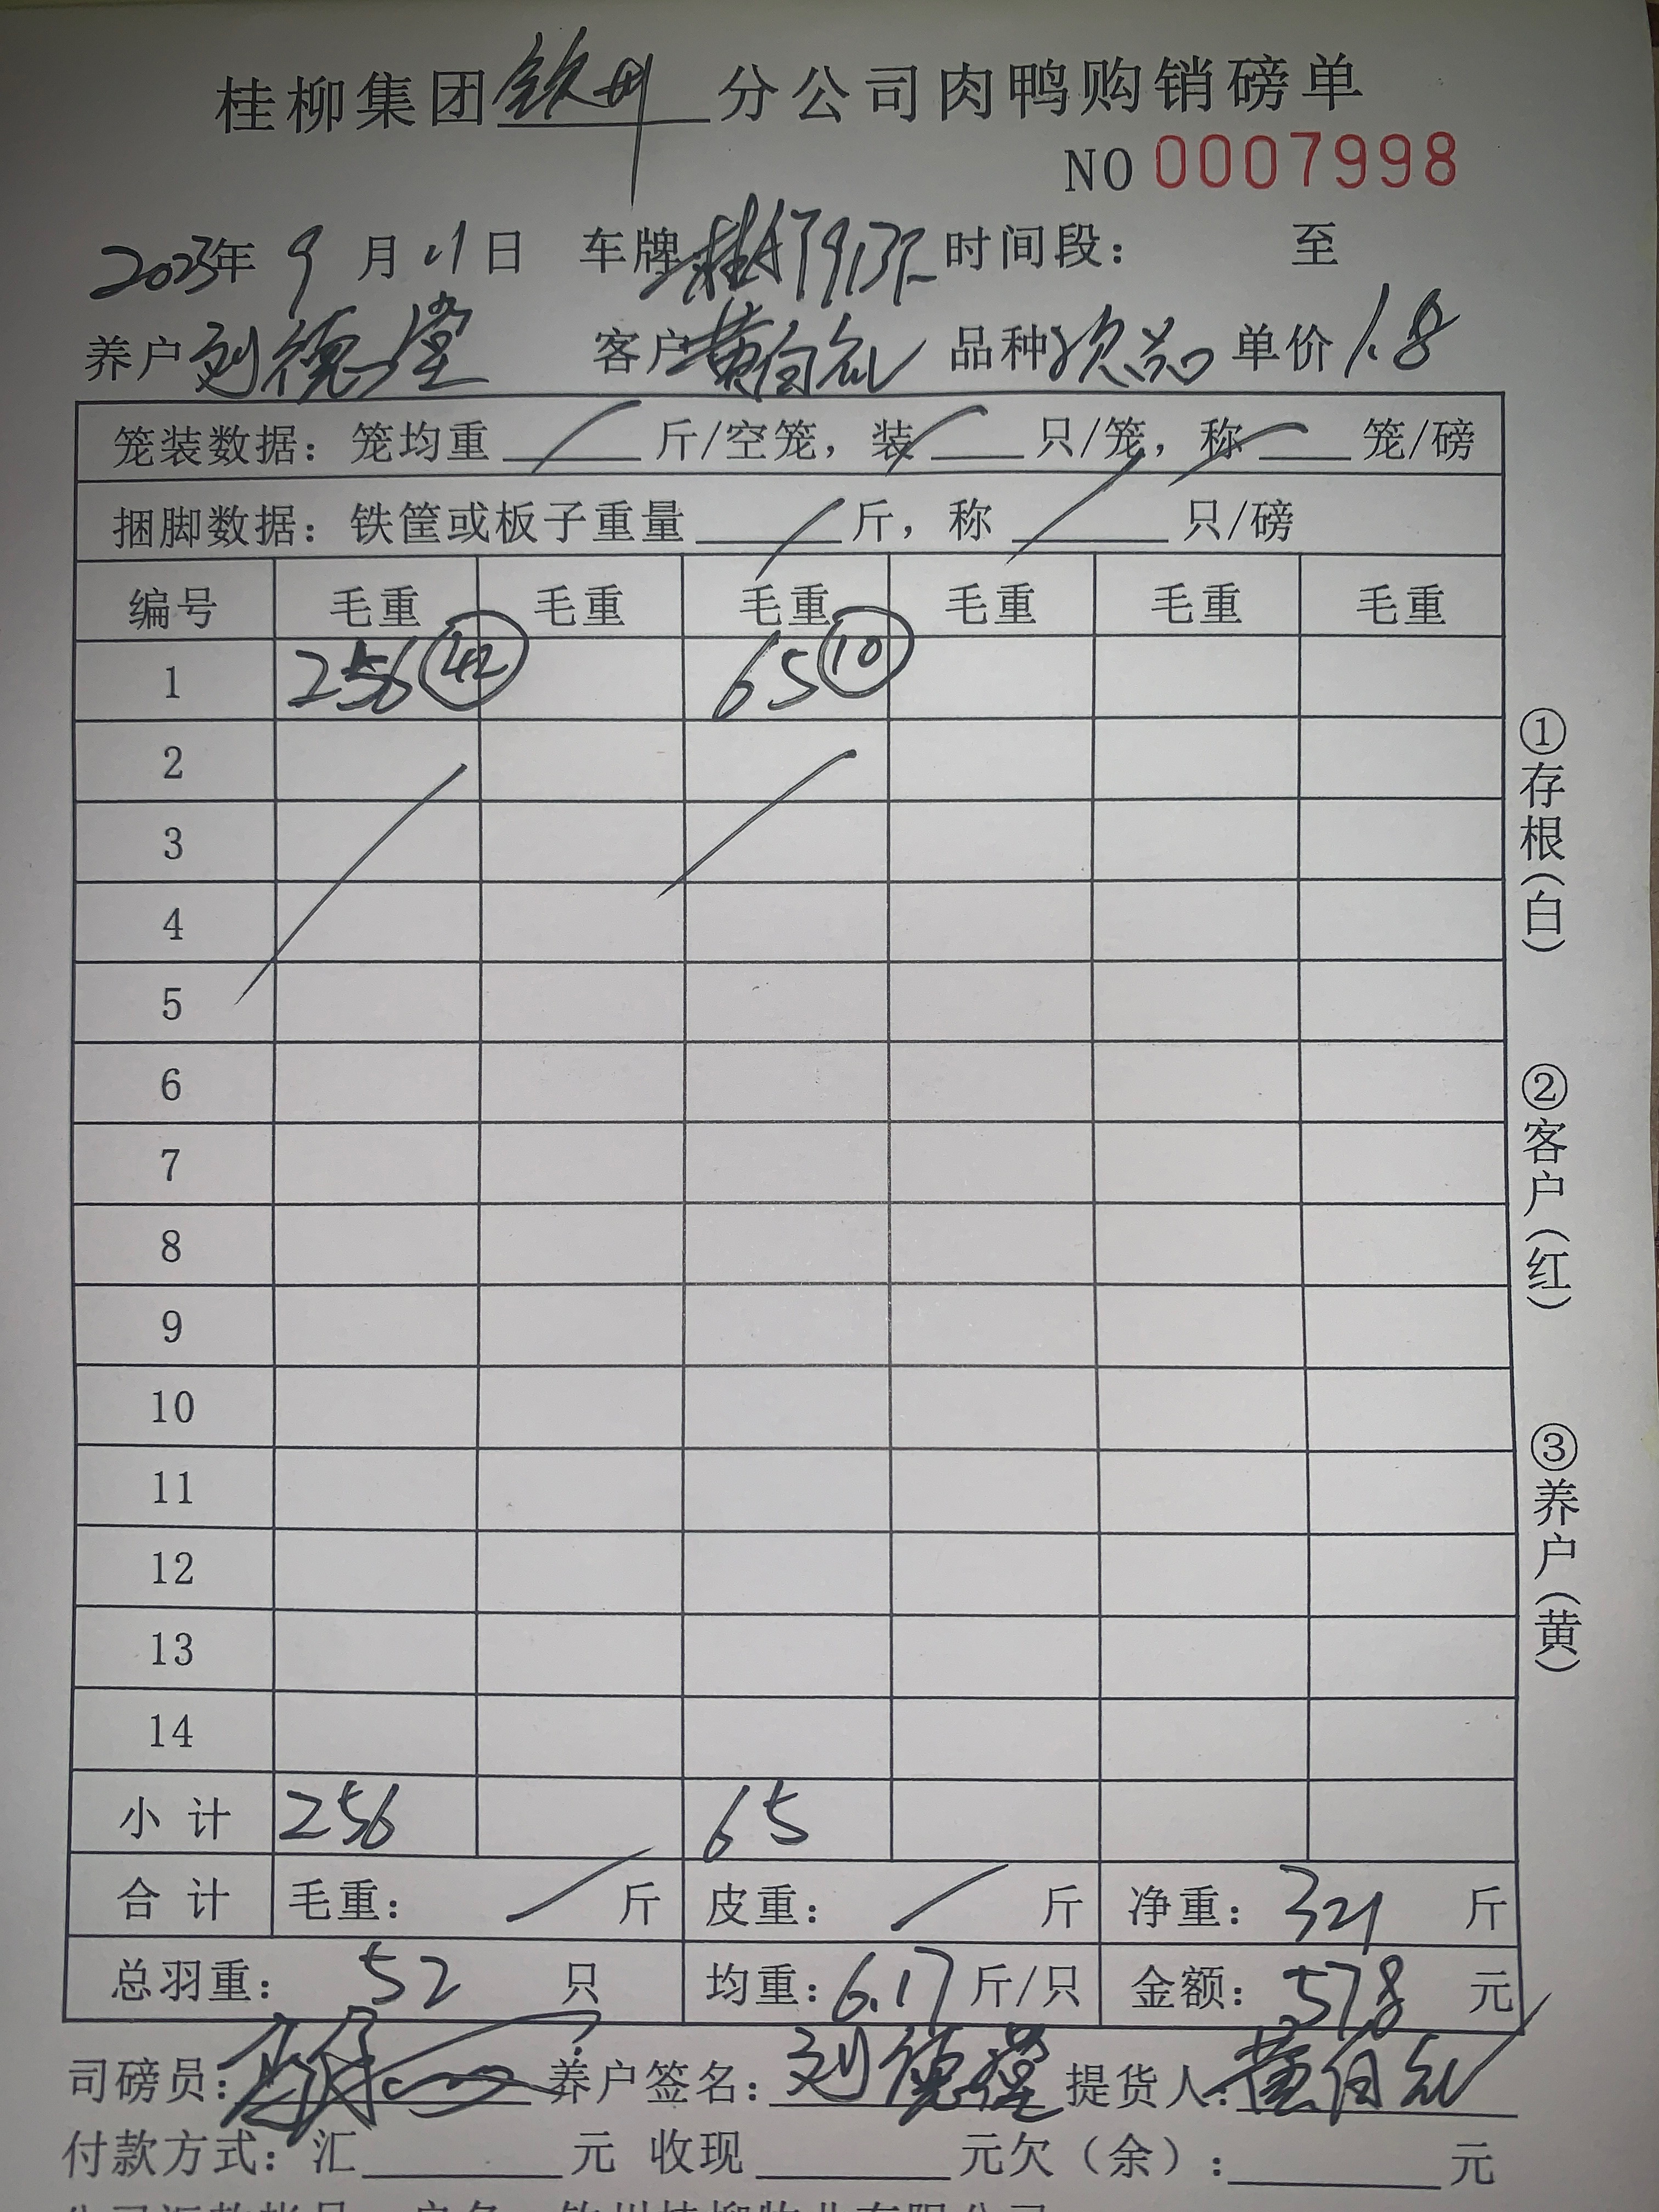 桂柳集团钦州分公司肉鸭购销磅单
NO 0007998
2023年 9 月 日 车牌: 时间段: 至
养户 刘德堂 客户 黄 品种 次品 单价 1.8
笼装数据: 笼均重 斤/空笼, 装 只/笼, 称 笼/磅
捆脚数据: 铁筐或板子重量 斤, 称 只/磅
编号 毛重 毛重 毛重 毛重 毛重 毛重
1 256 42 65 10
2
3
4
5
6
7
8
9
10
11
12
13
14
小 计 256 65
合 计 毛重: 斤 皮重: 斤 净重: 321 斤
总羽重: 52 只 均重: 6.17 斤/只 金额: 578 元
司磅员: 养户签名: 刘德堂 提货人: 黄
付款方式: 汇 元 收现 元欠(余): 元
①存根(白)
②客户(红)
③养户(黄)